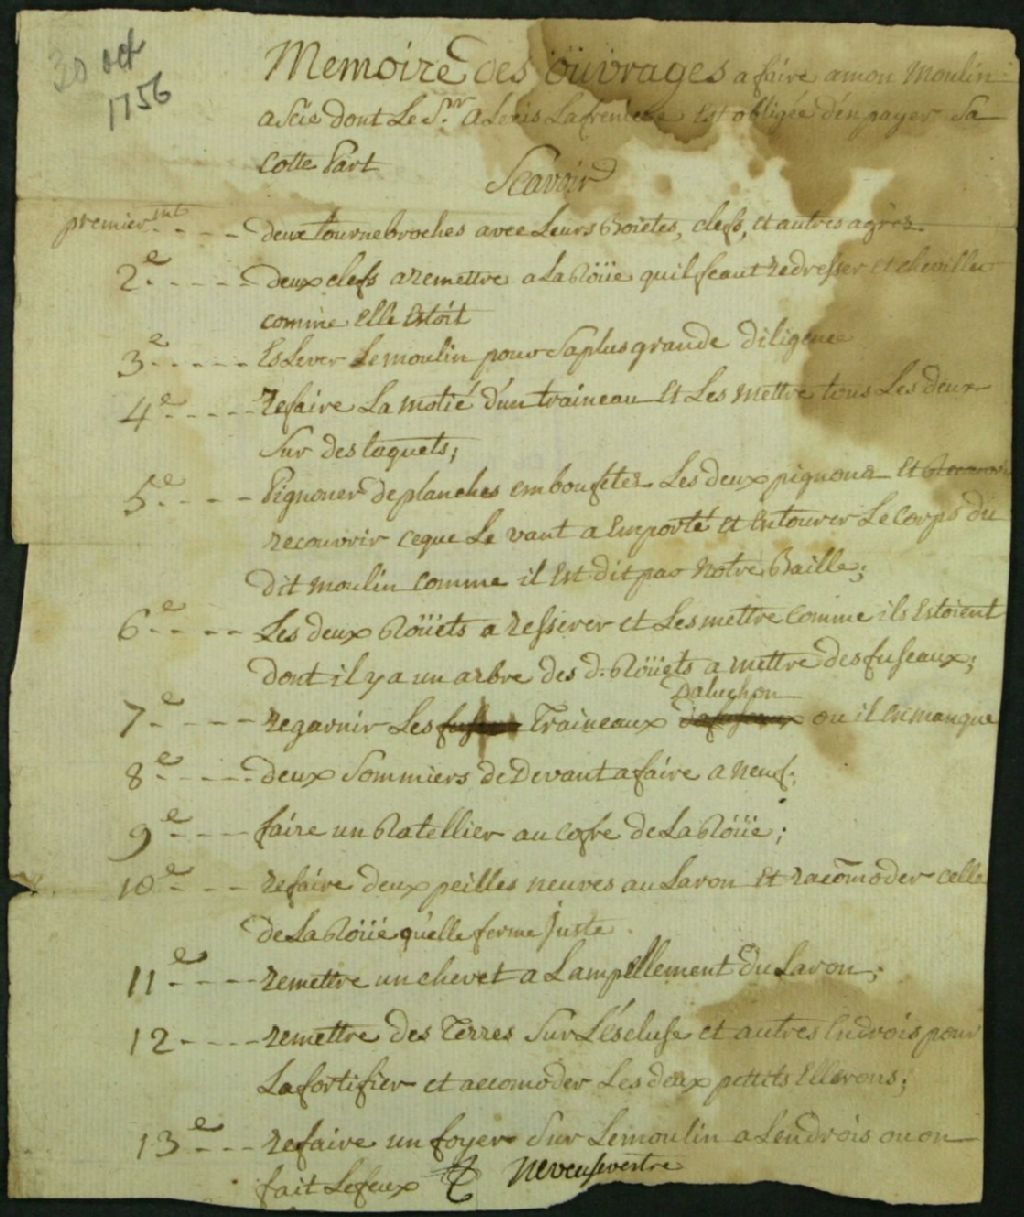 30 oct
1756
Memoire des ouvrages a faire amon Moulin
a Scie dont Le Sr. Alexis Lafreniere Est obligée d'en payer Sa
Cotte Part
Scavoir
premierment ---- deux tournebroches avec Leurs Boietes, clefs, et autres agrès.
2e ----- deux clefs a remettre a La Röüe qu'il feaut redresser et cheviller
comme Elle Estoit
3e ----- Eslever Lemoulin pour Saplus grande diligence
4e ----- refaire La motié d'un traineau Et Les mettre tous Les deux
Sur des taquets;
5e ---- Pignoner de planches emboufetez Les deux pignons et
recouvrir ceque Le vant a Emporté et Entourer Le Corps du
dit moulin comme il Est dit par Notre Baille;
6e ---- Les deux Röüets a resserer et Lesmettre comme ils Estoient
dont il y a un arbre des d. Röüets a mettre des fuseaux;
7e ---- regarnir Les Traineaux Daluchon ou il en manque
8e ---- deux Sommiers de Devant a faire a neuf.
9e ---- faire un Ratellier au cofre de La Röüe;
10e ---- refaire deux peilles neuves au Laron Et racomoder celle
de La Röüe qu'elle ferme Juste.
11e ---- remettre un chevet a Lampellement du Laron;
12 ---- remettre des Terres Sur L'écluse et autres Endrois pour
La fortifier et accomoder Les deux petits Ellerons;
13e --- refaire un foyer Sur Lemoulin a L'endrois ou on
fait Lefeux neveu sevestre